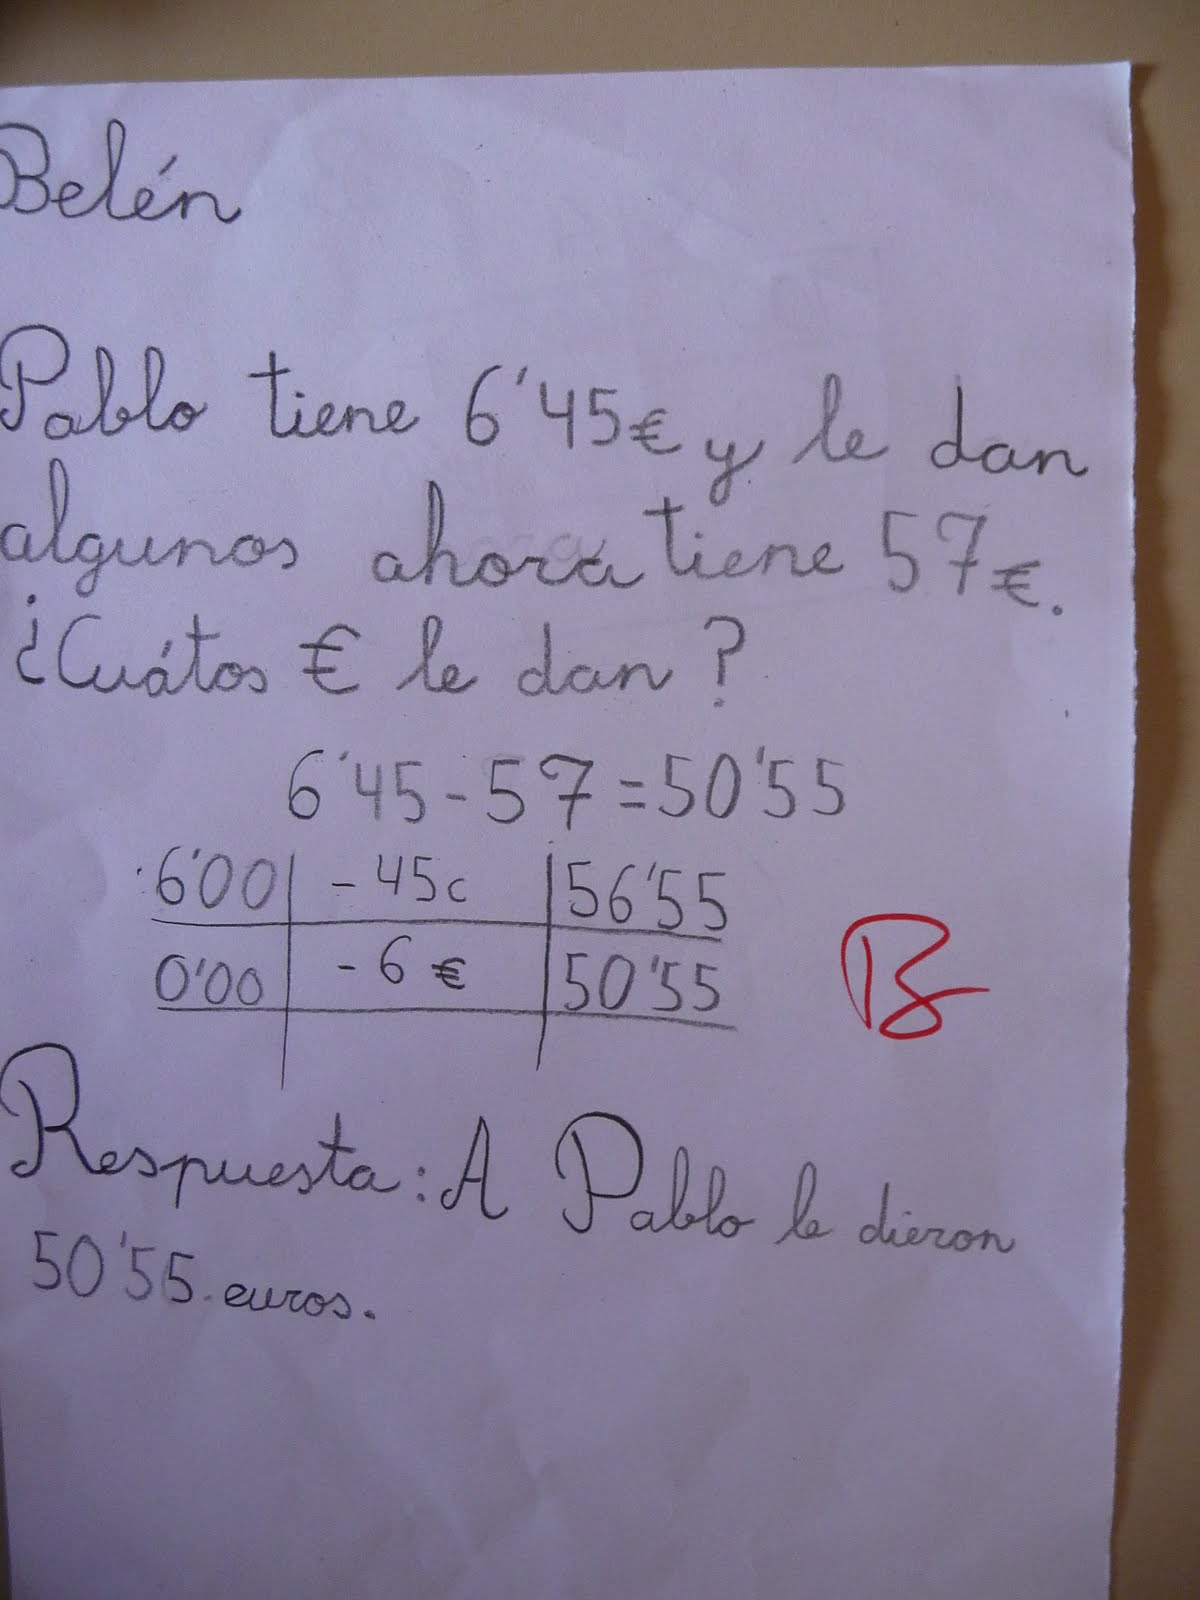 Belén
Pablo tiene 6'45€ y le dan
algunos ahora tiene 57€.
¿Cuátos € le dan?
6'45-57=50'55
6'00 - 45c 56'55
0'00 - 6 € 50'55
B
Respuesta: A Pablo le dieron
50'55 euros.